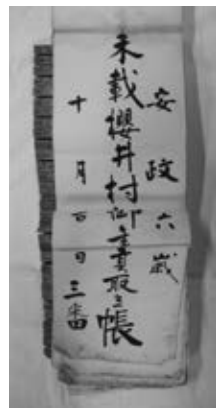 安政六歳
未載櫻井村御年貢取立帳
十月百日三番